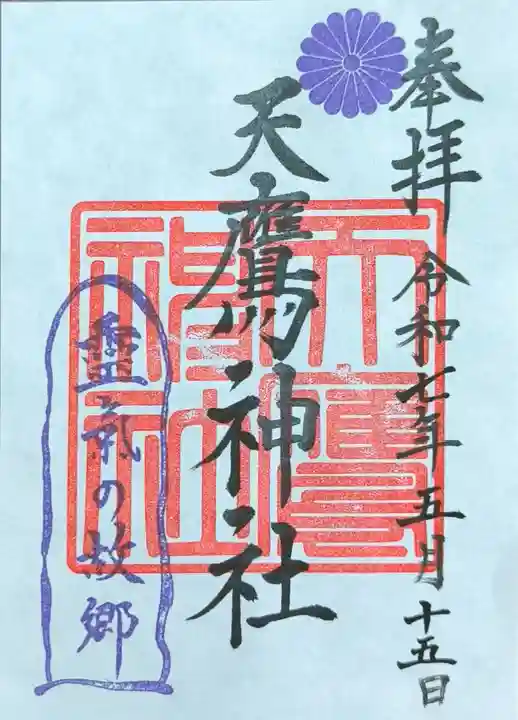 奉拝
令和七年五月十五日
天鷹神社
天鷹神社
霊氣の故郷